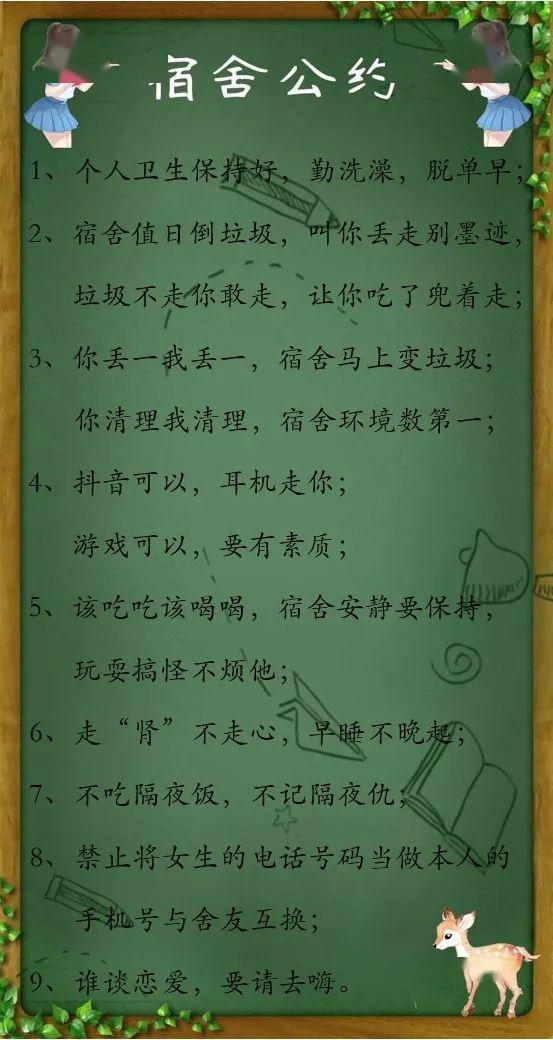 宿舍公约
1、个人卫生保持好，勤洗澡，脱单早；
2、宿舍值日倒垃圾，叫你丢走别墨迹，
垃圾不走你敢走，让你吃了兜着走；
3、你丢一我丢一，宿舍马上变垃圾；
你清理我清理，宿舍环境数第一；
4、抖音可以，耳机走你；
游戏可以，要有素质；
5、该吃吃该喝喝，宿舍安静要保持，
玩耍搞怪不烦他；
6、走“肾”不走心，早睡不晚起；
7、不吃隔夜饭，不记隔夜仇；
8、禁止将女生的电话号码当做本人的
手机号与舍友互换；
9、谁谈恋爱，要请去嗨。